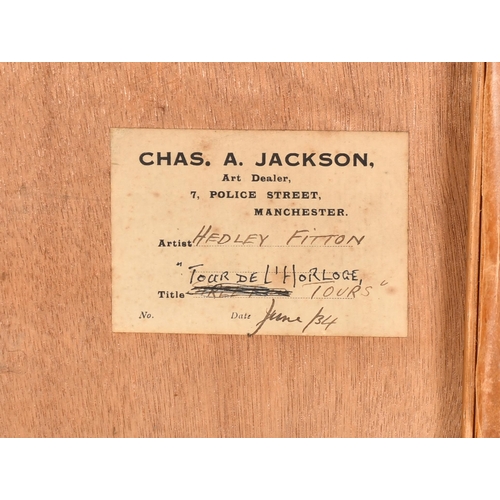 CHAS. A. JACKSON,
Art Dealer,
7, POLICE STREET,
MANCHESTER.
Artist HEDLEY FITTON
"TOUR DE L'HORLOGE,
Title TOURS"
No. Date June /34